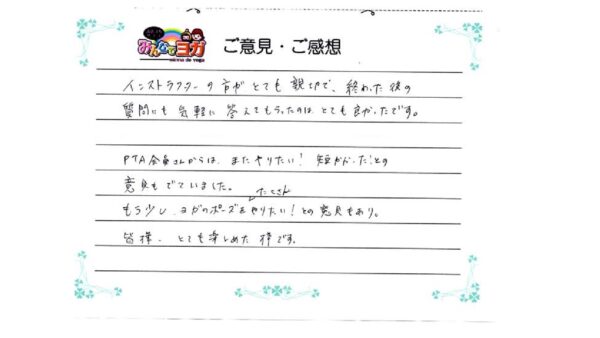 みんなでヨガ
minna de yoga
ご意見・ご感想
インストラクターの方がとても親切で、終わった後の
質問にも気軽に答えてもらったのはとても良かったです。
PTA会員さんからは、またやりたい！短かかったとの
意見もでていました。
たくさん
もう少し、ヨガのポーズをやりたい！との意見もあり。
皆様、とても楽しめた様です。